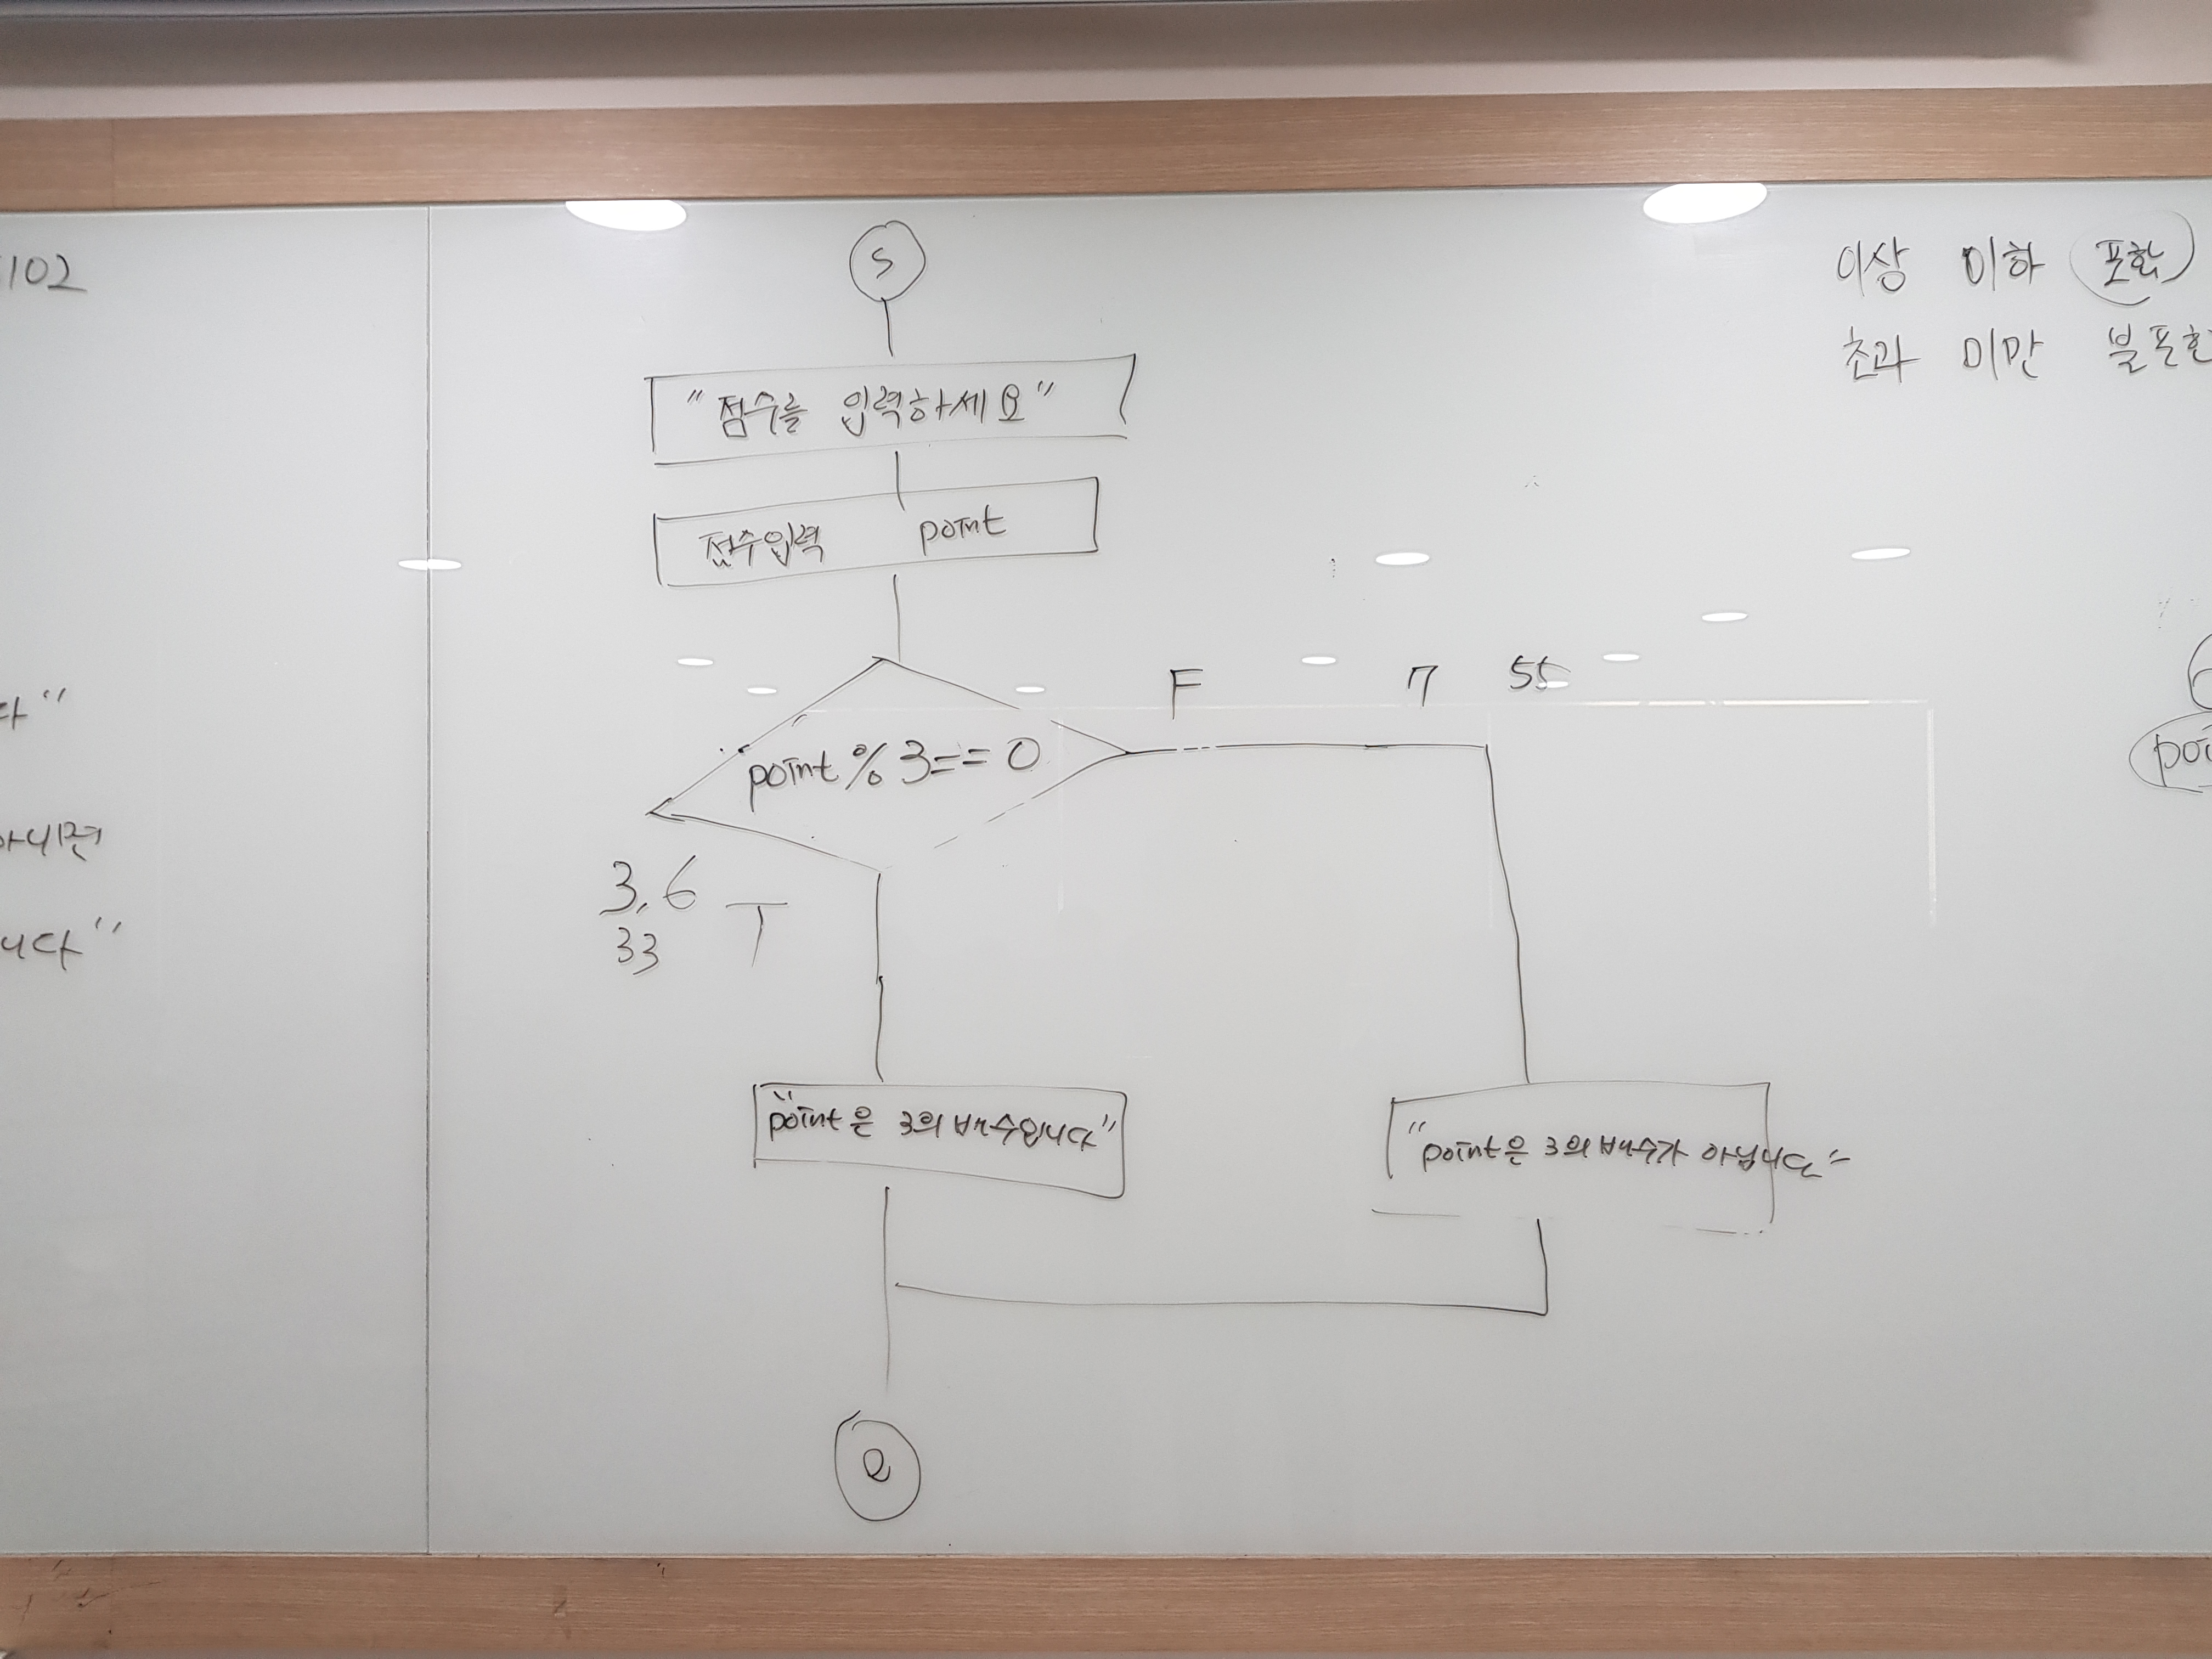 102
다"
아니면
니다"
S
"점수를 입력하세요"
점수입력 point
point % 3 == 0
F 7 55
3, 6
33 T
"point은 3의 배수입니다"
"point은 3의 배수가 아닙니다"
e
이상 이하 포함
초과 미만 불포함
6
poi